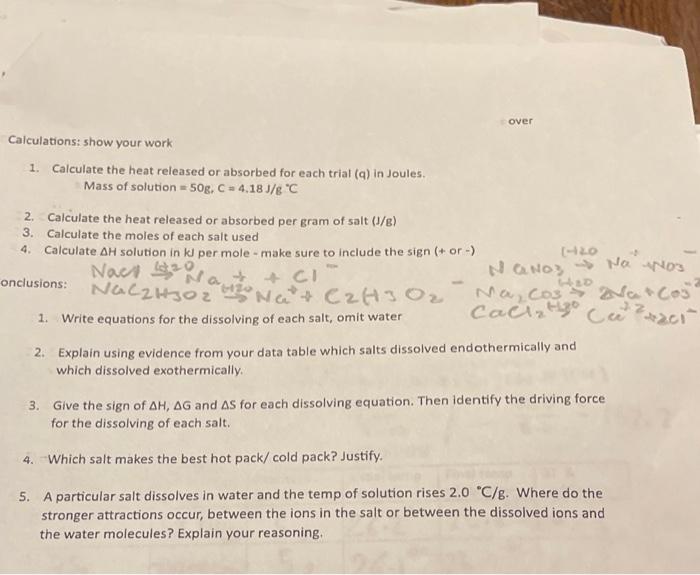 over
Calculations: show your work
1. Calculate the heat released or absorbed for each trial (q) in Joules.
Mass of solution = 50g, C = 4.18 J/g °C
2. Calculate the heat released or absorbed per gram of salt (J/g)
3. Calculate the moles of each salt used
4. Calculate ΔH solution in kJ per mole - make sure to include the sign (+ or -)
NaCl H2O→ Na+ + Cl-
NaNO3 H2O→ Na+ + NO3-
onclusions:
NaC2H3O2 H2O→ Na+ + C2H3O2-
Na2CO3 H2O→ 2Na+ + CO3-2
CaCl2 H2O→ Ca+2 + 2Cl-
1. Write equations for the dissolving of each salt, omit water
2. Explain using evidence from your data table which salts dissolved endothermically and
which dissolved exothermically.
3. Give the sign of ΔH, ΔG and ΔS for each dissolving equation. Then identify the driving force
for the dissolving of each salt.
4. Which salt makes the best hot pack/ cold pack? Justify.
5. A particular salt dissolves in water and the temp of solution rises 2.0 °C/g. Where do the
stronger attractions occur, between the ions in the salt or between the dissolved ions and
the water molecules? Explain your reasoning.